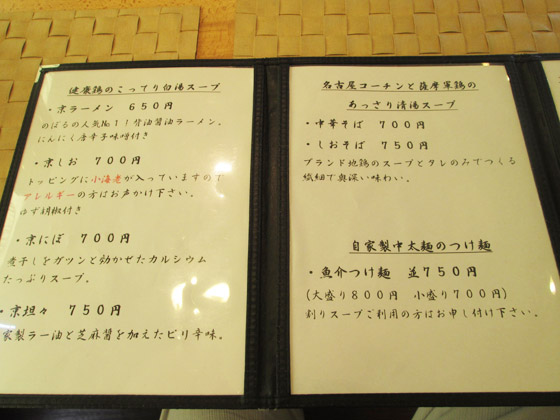 健康鶏のこってり白湯スープ
・京ラーメン 650円
のぼるの人気No11背油醤油ラーメン。
にんにく唐辛子味噌付き
・京しお 700円
トッピングに小海老が入っていますので
アレルギーの方はお声かけ下さい。
ゆず胡椒付き
・京にぼ 700円
煮干しをガツンと効かせたカルシウム
たっぷりスープ。
・京坦々 750円
家製ラー油と芝麻醤を加えたピリ辛味。
名古屋コーチンと薩摩軍鶏の
あっさり清湯スープ
・中華そば 700円
・しおそば 750円
ブランド地鶏のスープとタレのみでつくる
繊細で奥深い味わい。
自家製中太麺のつけ麺
・魚介つけ麺 並750円
(大盛り800円 小盛り700円)
割りスープご利用の方はお申し付け下さい。